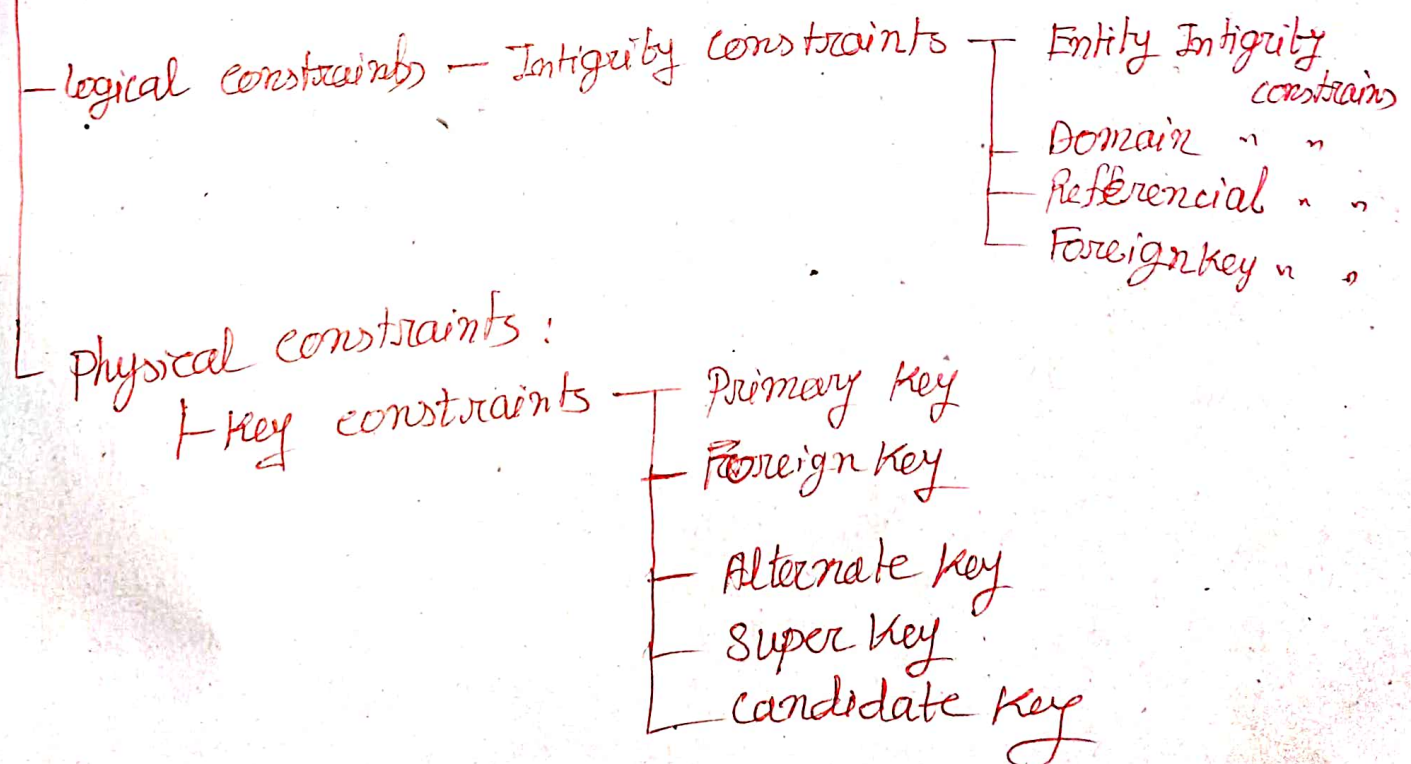 Logical constraints - Intigrity constraints - Entity Intigrity
constrains
Domain " "
Referencial " "
Foreign key " "
Physical constraints:
Key constraints - Primary Key
Foreign Key
Alternate Key
Super Key
Candidate Key